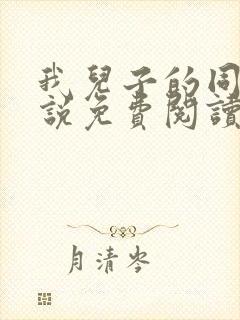 我兒子的同
說免費閱讀
月清岑